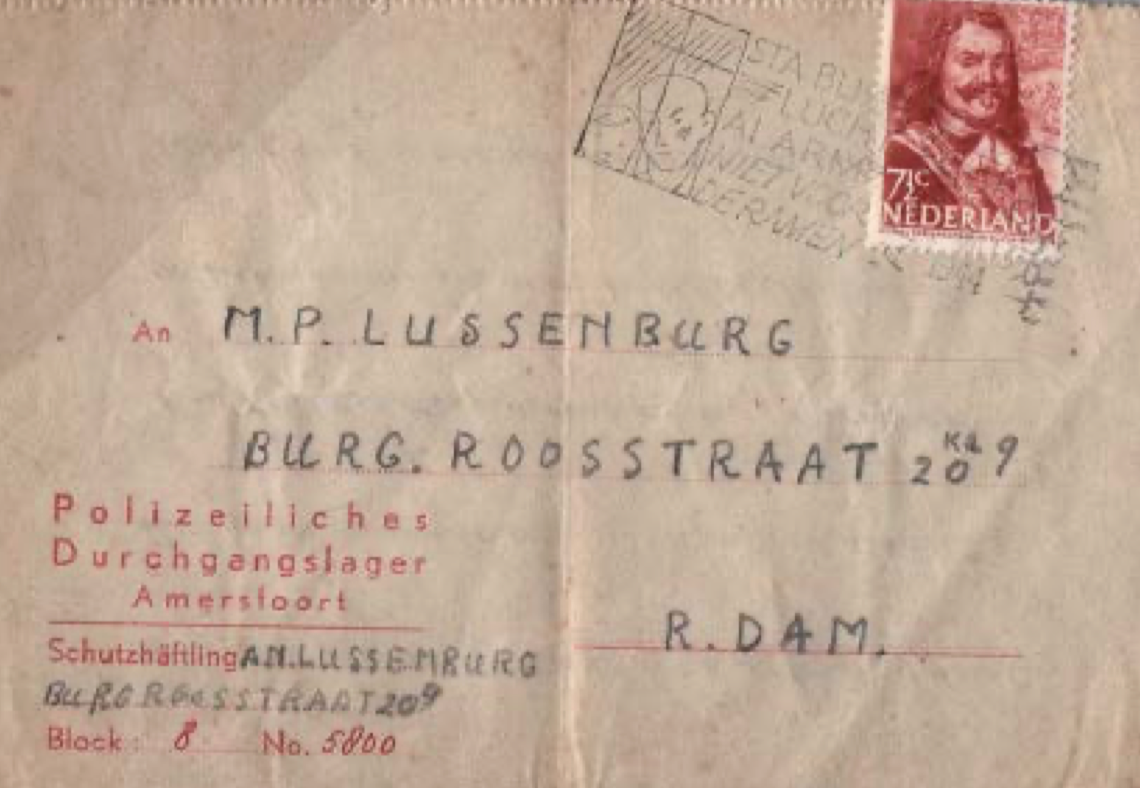 STA BIJ
LUCH
ALARM
NIET VOOR
DE RAMEN
7½c
NEDERLAND
1944
An M. P. LUSSENBURG
BURG. ROOSSTRAAT 20 9
Polizeiliches
Durchgangslager
Amersfoort
R. DAM.
Schutzhäftling A.N. LUSSENBURG
BURG ROOSSTRAAT 20 9
Block: 8 No. 5800